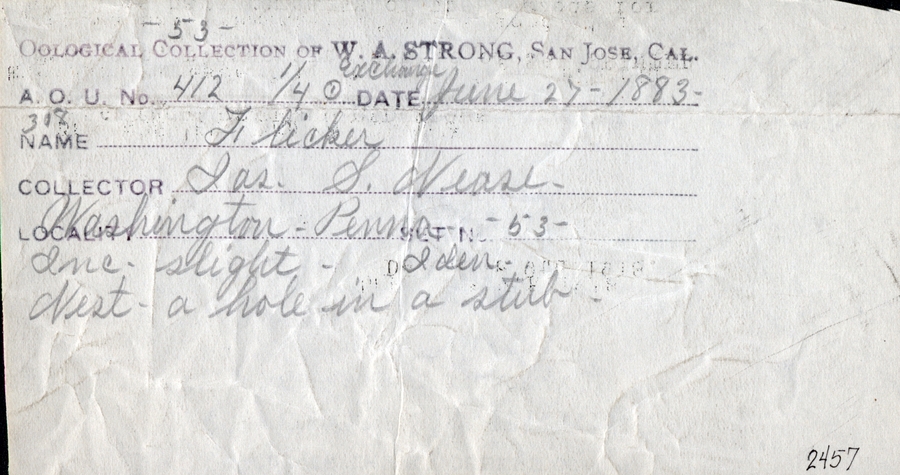 -53-
OOLOGICAL COLLECTION OF W. A. STRONG, SAN JOSE, CAL.
Exchange
A. O. U. No. 412 1/4 DATE June 27-1883-
NAME Flicker
COLLECTOR Jas. S. Nease-
LOCALITY Washington-Penna. SET No. -53-
Inc- slight - Iden-
Nest- a hole in a stub-
2457